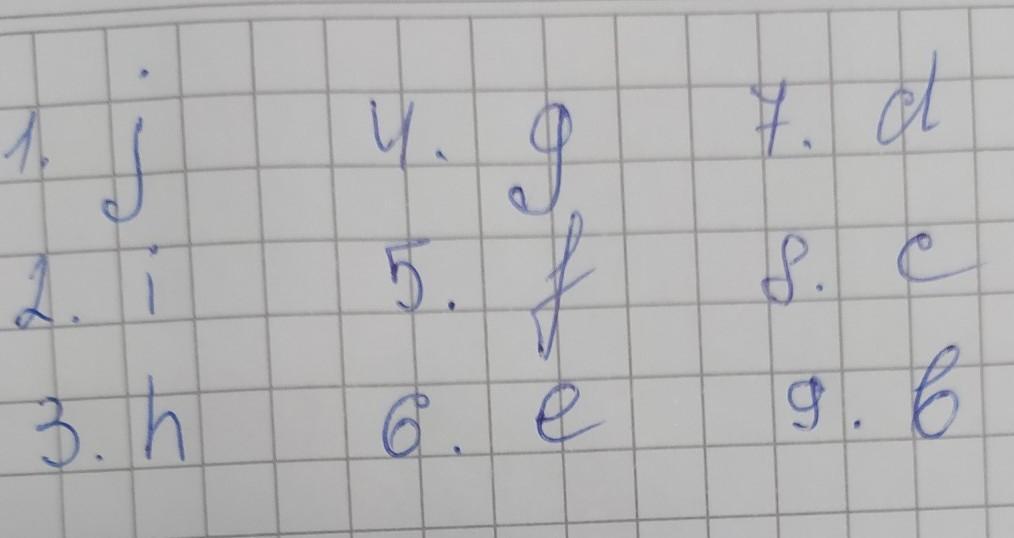 1. j 4. g 7. d
2. i 5. f 8. c
3. h 6. e 9. b